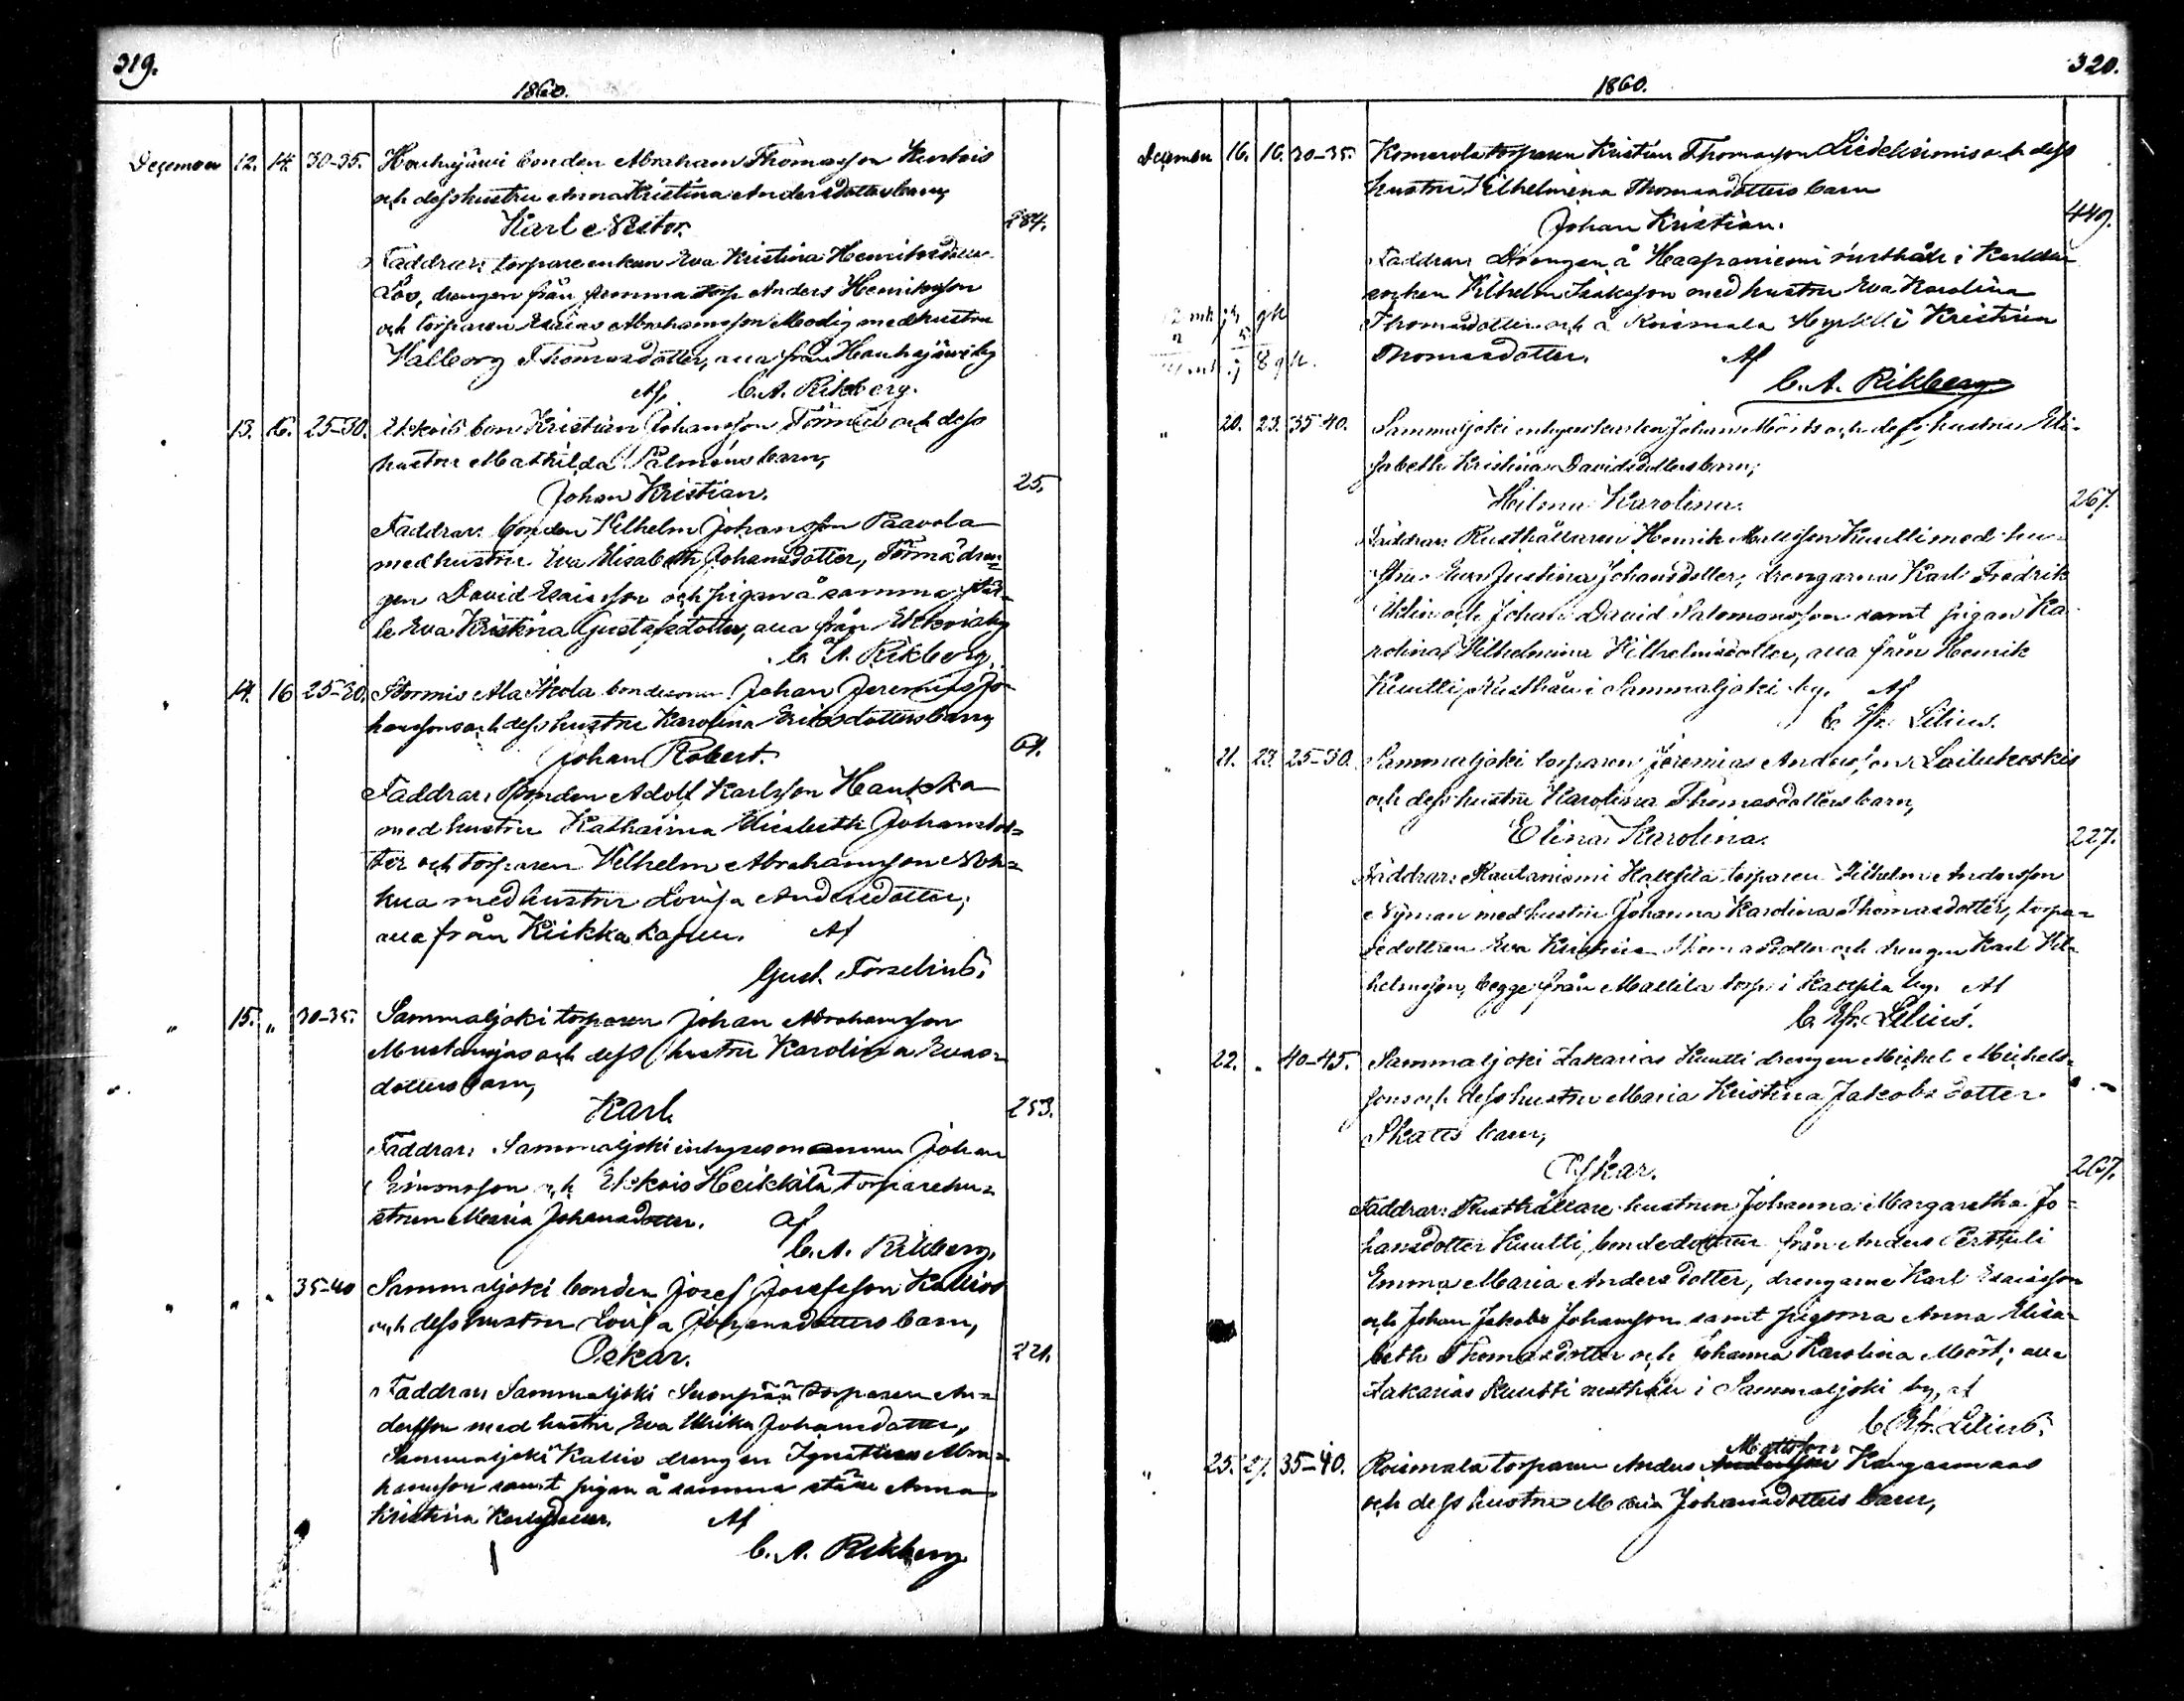 319.
1860.
December 12. 14. 30-35. Houhajärvi bonden Abraham Thomasson
och dess hustru Anna Kristina Andersdotters barn,
Karl Nestor. 284.
Faddrar: torpare enkan Eva Kristina Henriksdotter
Löv, drengen från samma torp Anders Henriksson
och torparen Esaias Abrahamsson Modig med hustru
Walborg Thomasdotter, alla från Houhajärvi by
Af C. A. Rikberg.
13. 16. 25-30. Ekkois bon. Kristian Johansson Törmäs och dess
hustru Mathilda Palmèns barn,
Johan Kristian. 25.
Faddrar: bonden Vilhelm Johansson Paavola
med hustru Eva Elisabeth Johansdotter, Törmä dren-
gen David Esaiasson och pigan å samma stäl-
le Eva Kristina Gustafsdotter, alla från Ekkois by
C. A. Rikberg.
14. 16 25-30. Stormis Ala Skola bondesonen Johan Jeremias Jo-
hanssons och dess hustru Karolina Eriksdotters barn,
Johan Robert. 61.
Faddrar: Bonden Adolf Karlsson Haukka
med hustru Katharina Elisabeth Johansdot-
ter och torparen Vilhelm Abrahamsson Nok-
kua med hustru Lovisa Andersdotter;
alla från Kiikka kapell. Af
Gust. Forselius.
" 15. " 30-35. Sammaljoki torparen Johan Abrahamsson
Mustaojas och dess hustru Karolina Evas-
dotters barn,
Karl. 253.
Faddrar: Sammaljoki inhysesmannen Johan
Simonsson och Ekkois Heikkilä torparehu-
strun Maria Johansdotter. Af
C. A. Rikberg.
" " " 35-40 Sammaljoki bonden Josef Josefsson Kallios
och dess hustru Lovisa Johansdotters barn,
Oskar. 221.
Faddrar: Sammaljoki Suonpää torparen An-
dersson med hustru Eva Ulrika Johansdotter,
Sammaljoki Kallio drengen Ignatius Abra-
hamsson samt pigan å samma ställe Anna
Kristina Karlsdotter. Af
C. A. Rikberg
320.
1860.
December 16. 16. 30-35. Komerola torparen Kristian Thomasson Liedeksimis och dess
hustru Vilhelmina Thomasdotters barn
Johan Kristian. 449.
Faddrar: Drengen å Haapaniemi rusthåll i Karkku
socken Vilhelm Isaksson med hustru Eva Karolina
Thomasdotter och å Roismala Kristina
Thomasdotter. Af
C. A. Rikberg
" 20. 23. 35-40. Sammaljoki inhyses karlen Johan Mörts och dess hustru Eli-
sabeth Kristina Davidsdotters barn,
Hilma Karolina. 267.
Faddrar: Rusthållaren Henrik Mattsson Kuutti med hu-
stru Eva Justina Johansdotter, drengarna Karl Fredrik
och Johan David Salomonsson samt pigan Ka-
rolina Vilhelmina Vilhelmsdotter, alla från Henrik
Kuutti Rusthåll i Sammaljoki by. Af
C. Efr. Lilius.
" 21. 23. 25-30. Sammaljoki torparen Jeremias Anderssons Lailukoskis
och dess hustru Karolina Thomasdotters barn,
Elina Karolina. 227.
Faddrar: Kautaniemi Kaltsila torparen Vilhelm Andersson
Nyman med hustru Johanna Karolina Thomasdotter, torpa-
redottren Eva Kristina Thomasdotter och drengen Karl Vil-
helmsson, begge från Mattila torp i Kaltsila by. Af
C. Efr. Lilius.
" 22. " 40-45. Sammaljoki Zakarias Kuutti drengen Mickel Mickels-
sons och dess hustru Maria Kristina Jakobsdotter
Skatts barn,
Oskar. 267.
Faddrar: Rusthållare hustrun Johanna Margaretha Jo-
hansdotter Kuutti, bondedottren från Anders Perttuli
Emma Maria Andersdotter, drengarne Karl Esaiasson
och Johan Jakob Johansson samt pigorna Anna Elisa-
beth Thomasdotter och Johanna Karolina Mört; alla
Zakarias Kuutti rusthåll i Sammaljoki by, af
C. Efr. Lilius.
Mattsson
" 25. 27. 35-40. Roismala torparen Anders Andersson Kangasmaas
och dess hustru Maria Johansdotters barn,